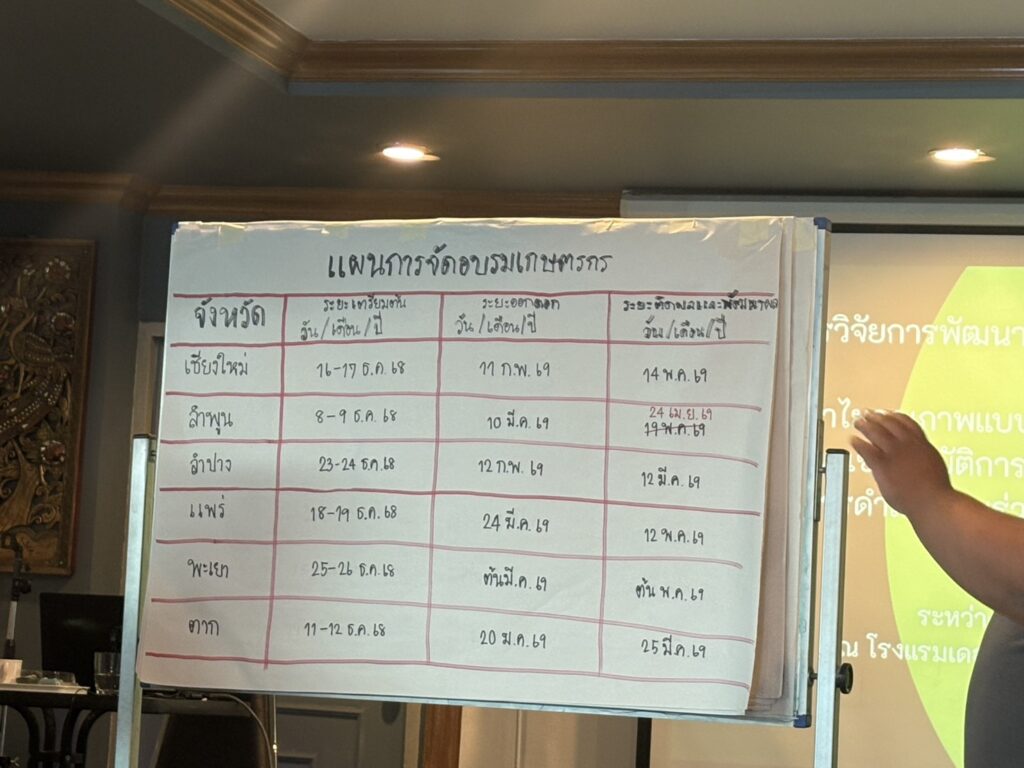 แผนการจัดอบรมเกษตรกร
จังหวัด ระยะเตรียมต้น ระยะออกดอก ระยะติดผลและพัฒนาผล
วัน/เดือน/ปี วัน/เดือน/ปี วัน/เดือน/ปี
เชียงใหม่ 16-17 ธ.ค. 68 11 ก.พ. 69 14 พ.ค. 69
24 เม.ย. 69
ลำพูน 8-9 ธ.ค. 68 10 มี.ค. 69 19 พ.ค. 69
ลำปาง 23-24 ธ.ค. 68 12 ก.พ. 69 12 มี.ค. 69
แพร่ 18-19 ธ.ค. 68 24 มี.ค. 69 12 พ.ค. 69
พะเยา 25-26 ธ.ค. 68 ต้นมี.ค. 69 ต้น พ.ค. 69
ตาก 11-12 ธ.ค. 68 20 ม.ค. 69 25 มี.ค. 69
วิจัยการพัฒนา
ภาพแบบ
บัติการ
ระหว่า
ณ โรงแรมเด